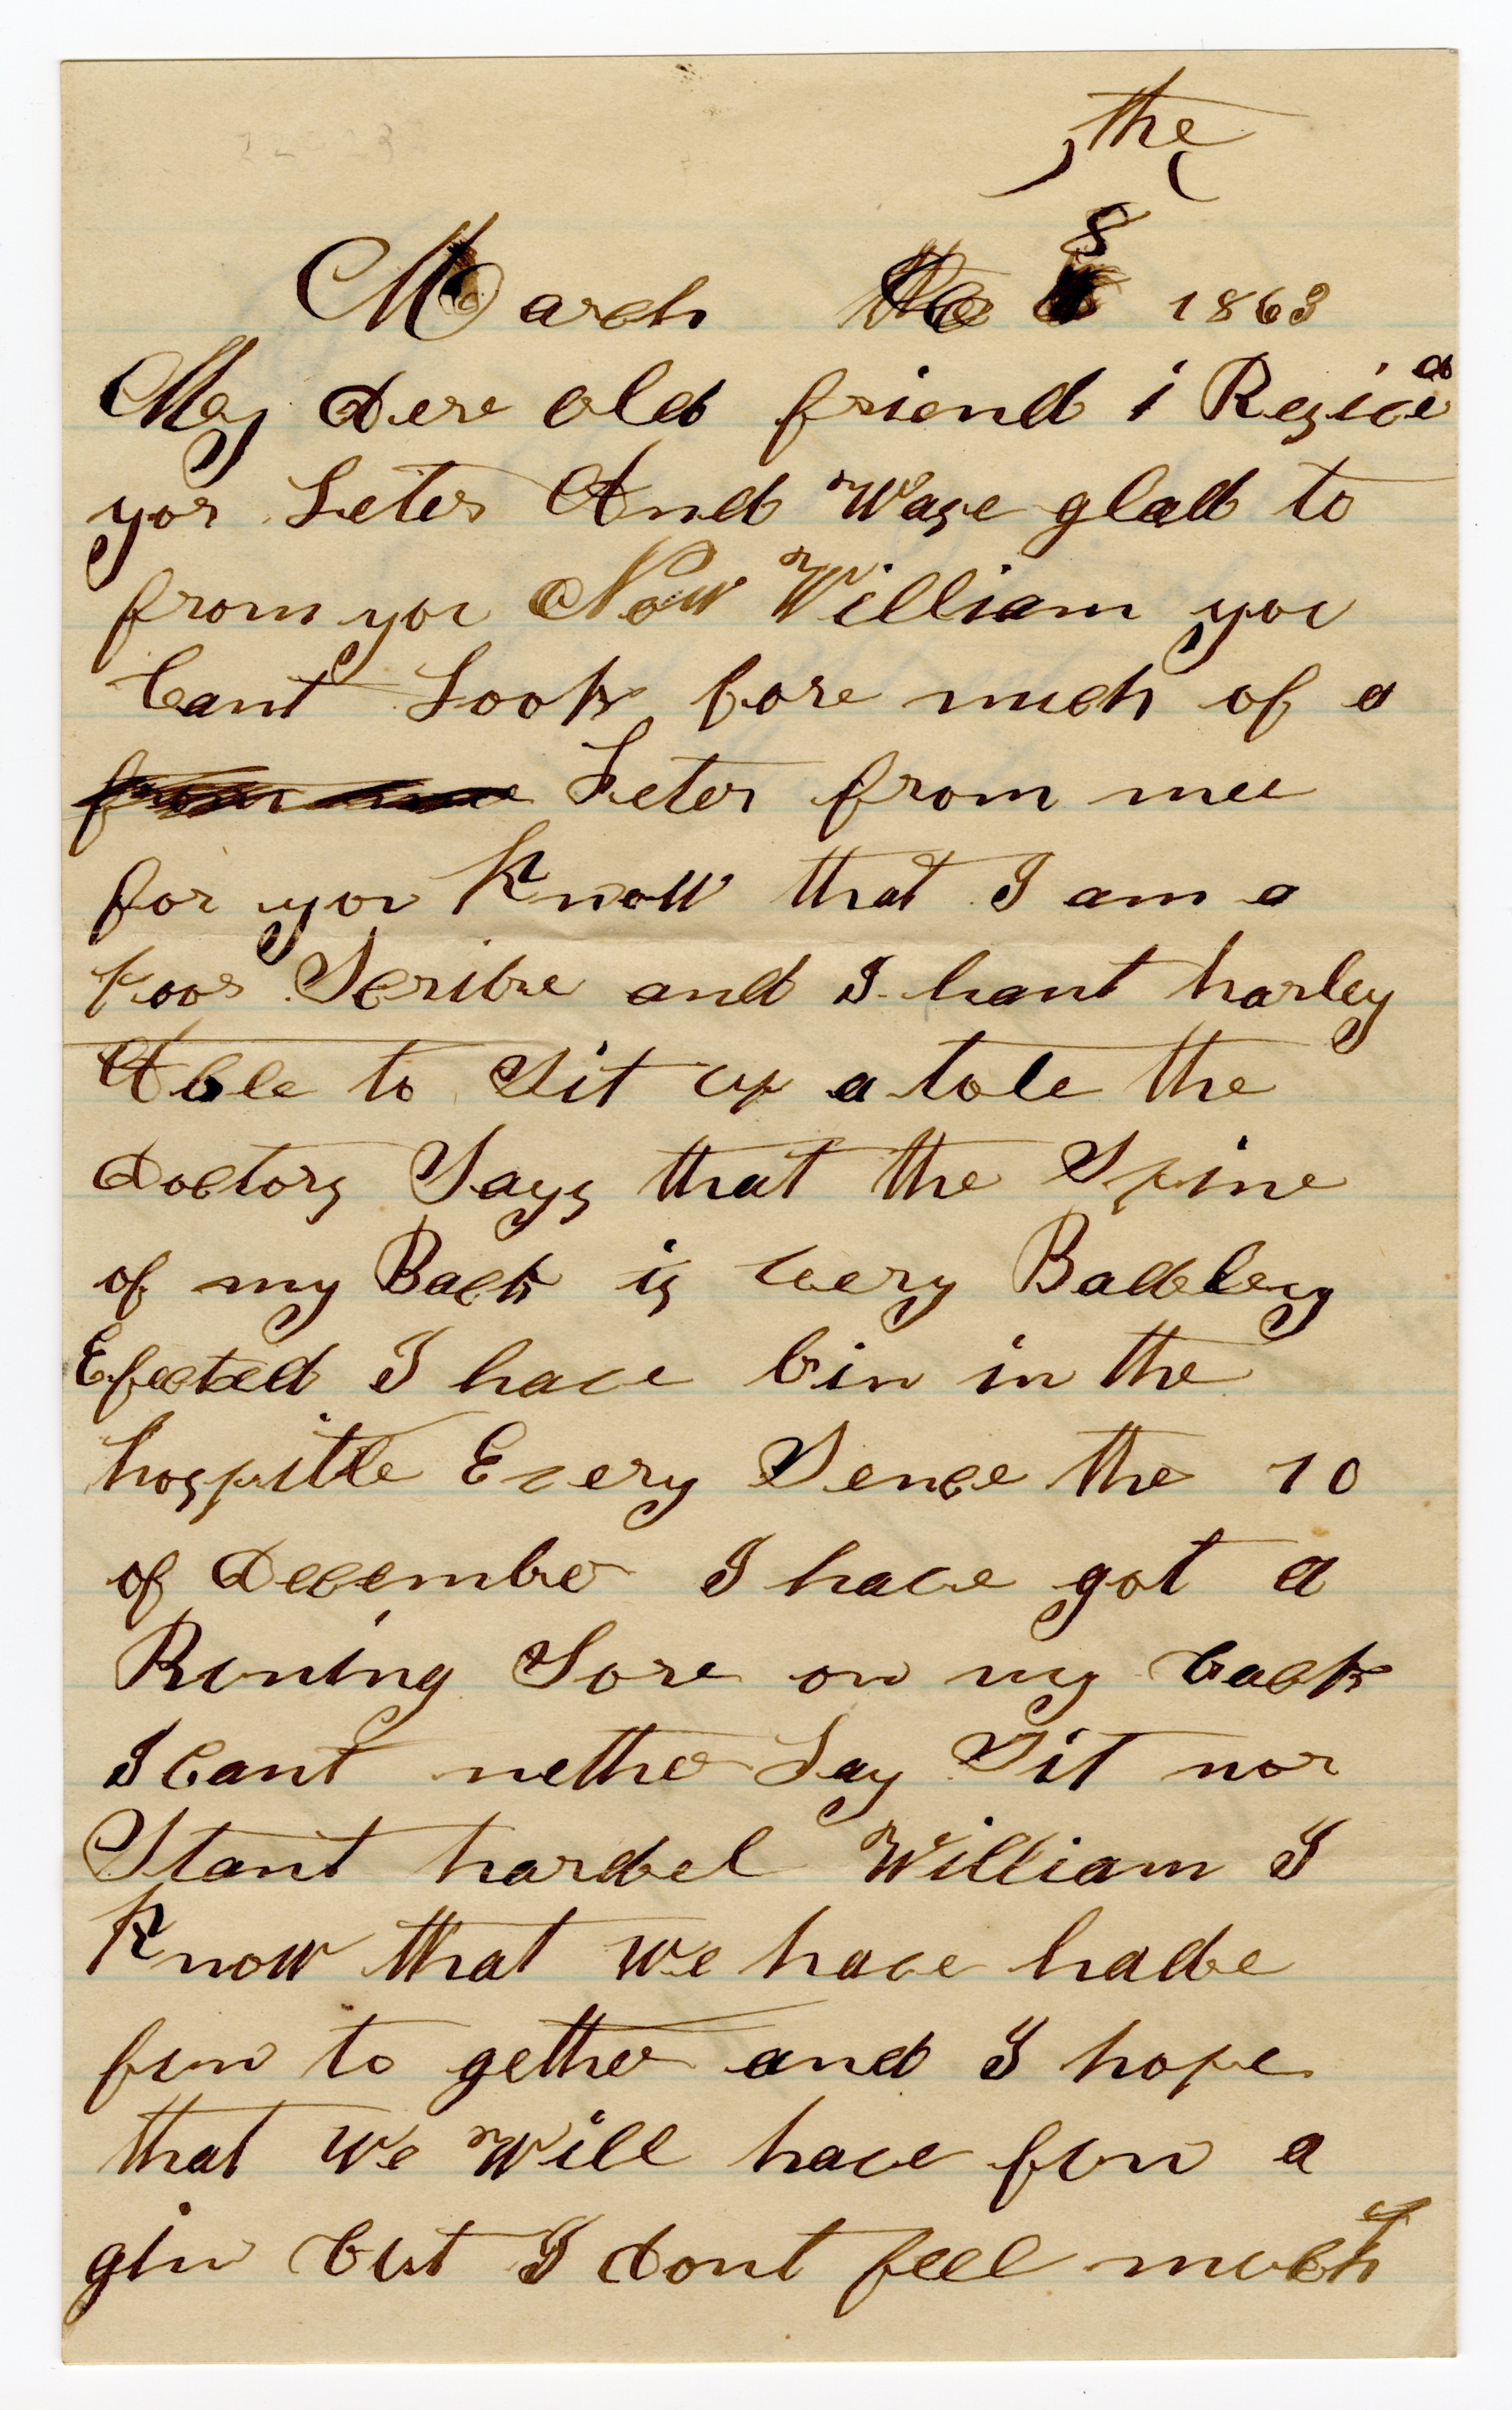 the
8
March the 1863
My Dere old friend i Resiced
yor Leter And Wase glad to
from you Now William you
Cant Look fore much of a
from mee Leter from mee
for you Know that I am a
poor Scribe and I hant harley
Able to Sit up a tole the
Doctors Says that the Spine
of my Back is very Badeley
Efected I have bin in the
hospitle Every Sence the 10
of December I have got a
Runing Sore on my back
I Cant nether Lay Sit nor
Stant hardel William I
Know that we have hade
fun to gether and I hope
that We Will have fun a
gin but I dont feel much
of